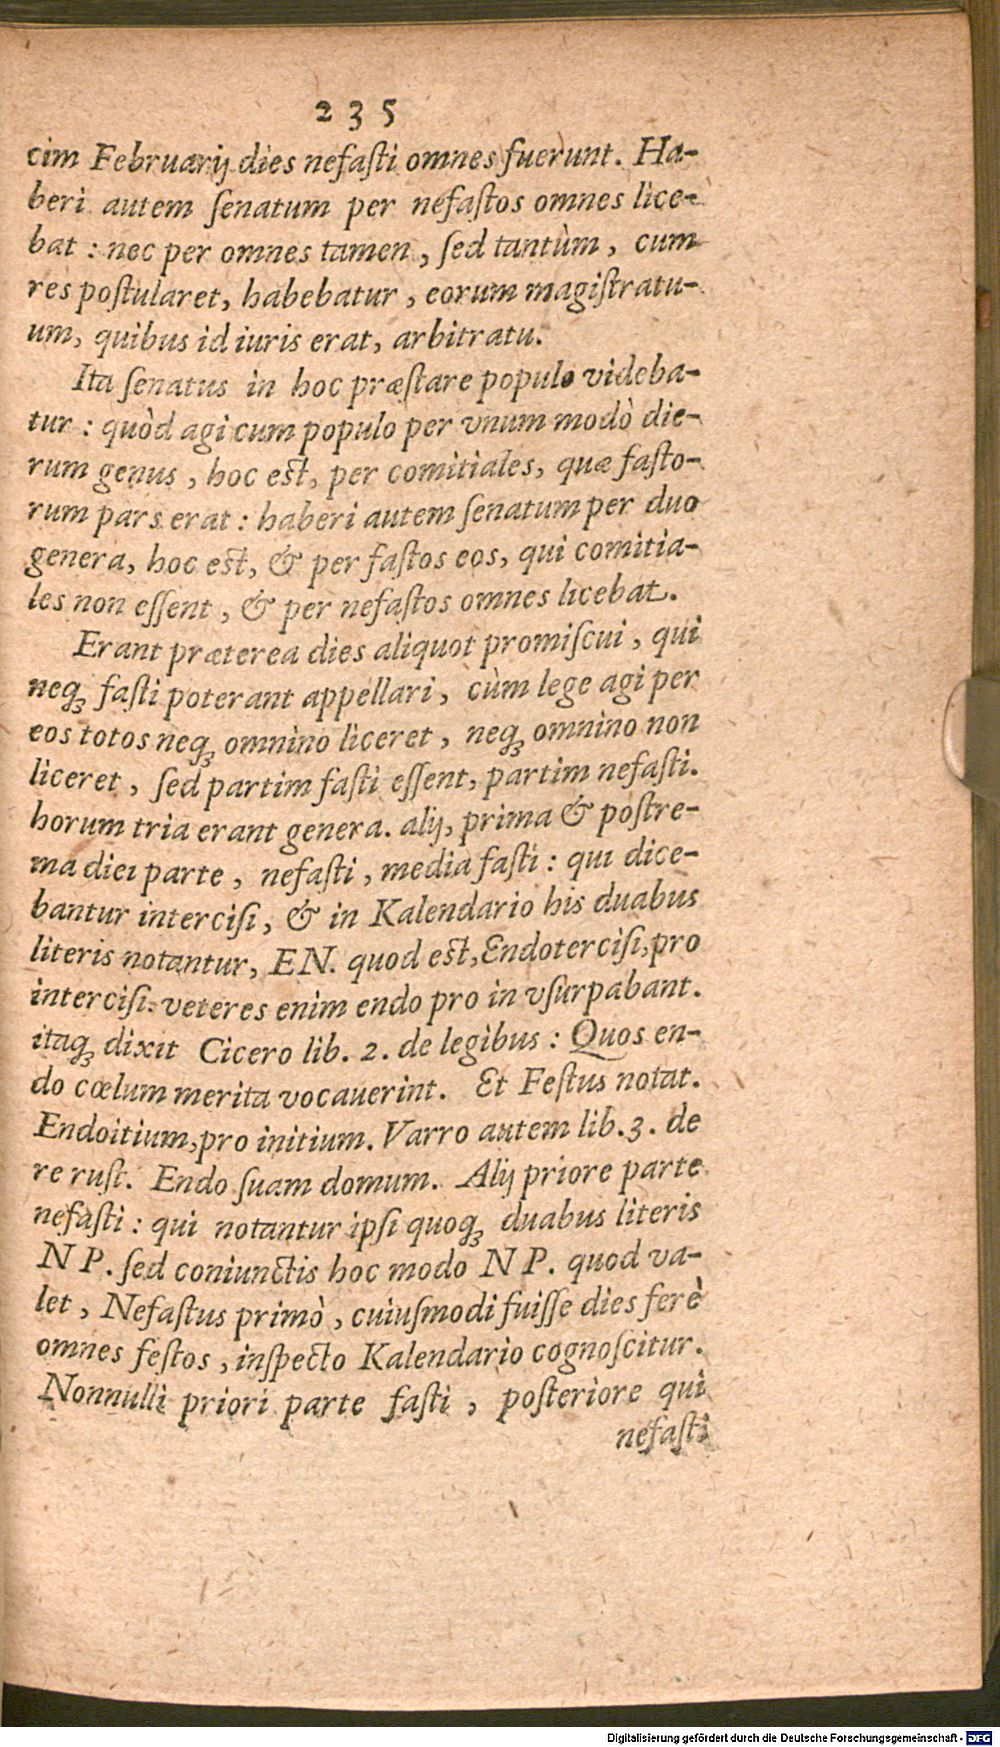 235
cim Februarij dies nefaſti omnes fuerunt. Ha-
beri autem ſenatum per nefaſtos omnes lice-
bat : nec per omnes tamen, ſed tantùm, cum
res poſtularet, habebatur, eorum magiſtratu-
um, quibus id iuris erat, arbitratu.
Ita ſenatus in hoc præſtare populo videba-
tur : quòd agi cum populo per vnum modò die-
rum genus, hoc est, per comitiales, quæ faſto-
rum pars erat : haberi autem ſenatum per duo
genera, hoc est, & per faſtos eos, qui comitia-
les non eſſent, & per nefaſtos omnes licebat.
Erant præterea dies aliquot promiſcui, qui
neqꝫ faſti poterant appellari, cùm lege agi per
eos totos neqꝫ omnino liceret, neqꝫ omnino non
liceret, ſed partim faſti eſſent, partim nefaſti.
horum tria erant genera. alij, prima & poſtre-
ma diei parte, nefaſti, media faſti : qui dice-
bantur interciſi, & in Kalendario his duabus
literis notantur, EN. quod est, Endoterciſi, pro
interciſi: veteres enim endo pro in vſurpabant.
itaqꝫ dixit Cicero lib. 2. de legibus : Quos en-
do cœlum merita vocauerint. Et Feſtus notat.
Endoitium, pro initium. Varro autem lib. 3. de
re ruſt. Endo ſuam domum. Alij priore parte
nefaſti : qui notantur ipſi quoqꝫ duabus literis
N P. ſed coniunctis hoc modo NP. quod va-
let, Nefaſtus primò, cuiuſmodi fuiſſe dies ferè
omnes feſtos, inſpecto Kalendario cognoſcitur.
Nonnulli priori parte faſti, poſteriore qui
nefaſti
Digitalisierung gefördert durch die Deutsche Forschungsgemeinschaft - DFG